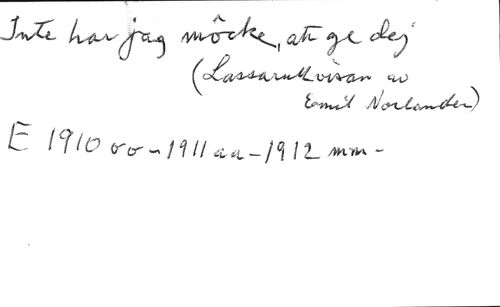 Inte har jag möcke, att ge dej
(Lassarettvisan av
Emil Norlander)
E 1910 oo - 1911 aa - 1912 mm -